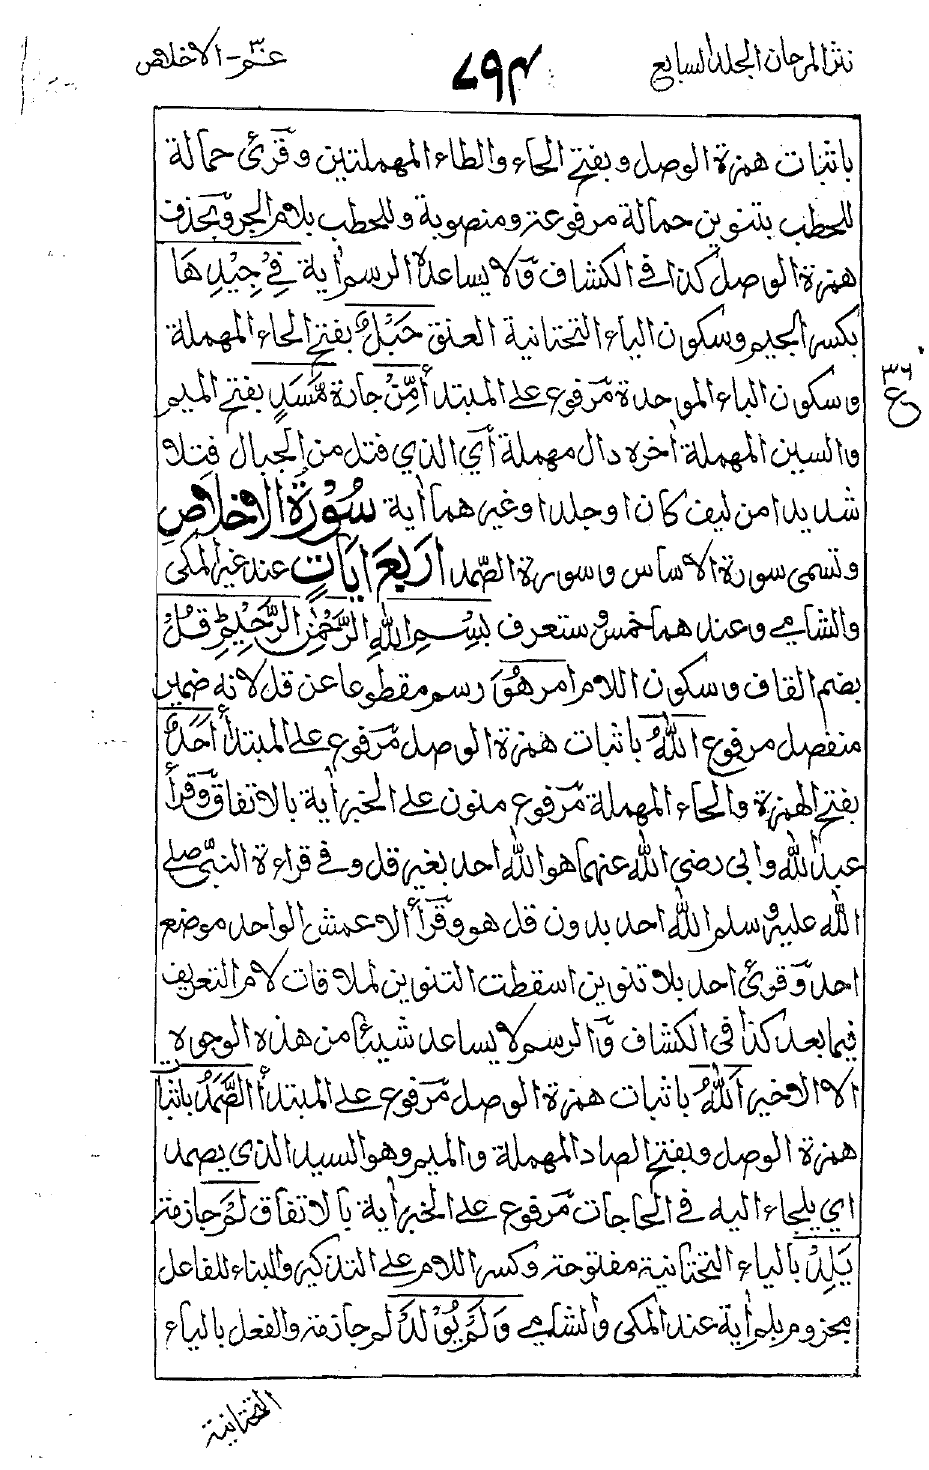 نثر المرجان المجلد السابع
٧٩٤
عم۳ - الاخلاص
باثبات همزة الوصل وبفتح الحاء والطاء المهملتين وقرئ حمالة
للحطب بتنوين حمالة مرفوعة ومنصوبة وللحطب بلام الجر وبحذف
همزة الوصل كذا في الكشاف ولا يساعدة الرسم أية فِيْ جِيْدِهَا
بكسر الجيم وسكون الياء التحتانية العنق حَبْلٌ بفتح الحاء المهملة
وسكون الباء الموحدة مرفوع على المبتدأ مِّنْ جارة مَّسَدٍ بفتح الميم
والسين المهملة أخره دال مهملة أي الذي فتل من الحبال فتلا
شديدا من ليف كان او جلد او غيرهما أية سُوْرَةُ الاخلاص
وتسمى سورة الاساس وسورة الصمد اَرْبَعَ اٰيَاتٍ عند غير المكى
والشامي وعندهما خمس وستعرف بِسْمِ اللّٰهِ الرَّحْمٰنِ الرَّحِيْمِ قُلْ
بضم القاف وسكون اللام امر هُوَ رسم مقطوعا عن قل لانه ضمير
منفصل مرفوع اللّٰهُ باثبات همزة الوصل مرفوع على المبتدأ اَحَدٌ
بفتح الهمزة والحاء المهملة مرفوع منون على الخبر أية بالاتفاق وقرأ
عبد الله وابي رضى الله عنهما هو الله احد بغير قل وفي قراءة النبي صلى
الله عليه وسلم الله احد بدون قل هو وقرأ الاعمش الواحد موضع
احد وقرئ احد بلا تنوين اسقطت التنوين لملاقات لام التعريف
فيما بعد كذا في الكشاف والرسم لا يساعد شيئا من هذه الوجوه
الا الاخير اَللّٰهُ باثبات همزة الوصل مرفوع على المبتدأ الصَّمَدُ باثبات
همزة الوصل وبفتح الصاد المهملة والميم وهو السيد الذي يصمد
اي يلجاء اليه في الحاجات مرفوع على الخبر أية بالاتفاق لَمْ جازمة
يَلِدْ بالياء التحتانية مفتوحة وكسر اللام على التذكير والبناء للفاعل
مجزوم بلم أية عند المكي والشامي وَلَمْ يُوْلَدْ لم جازمة والفعل بالياء
٣٦
ع
التحتانية